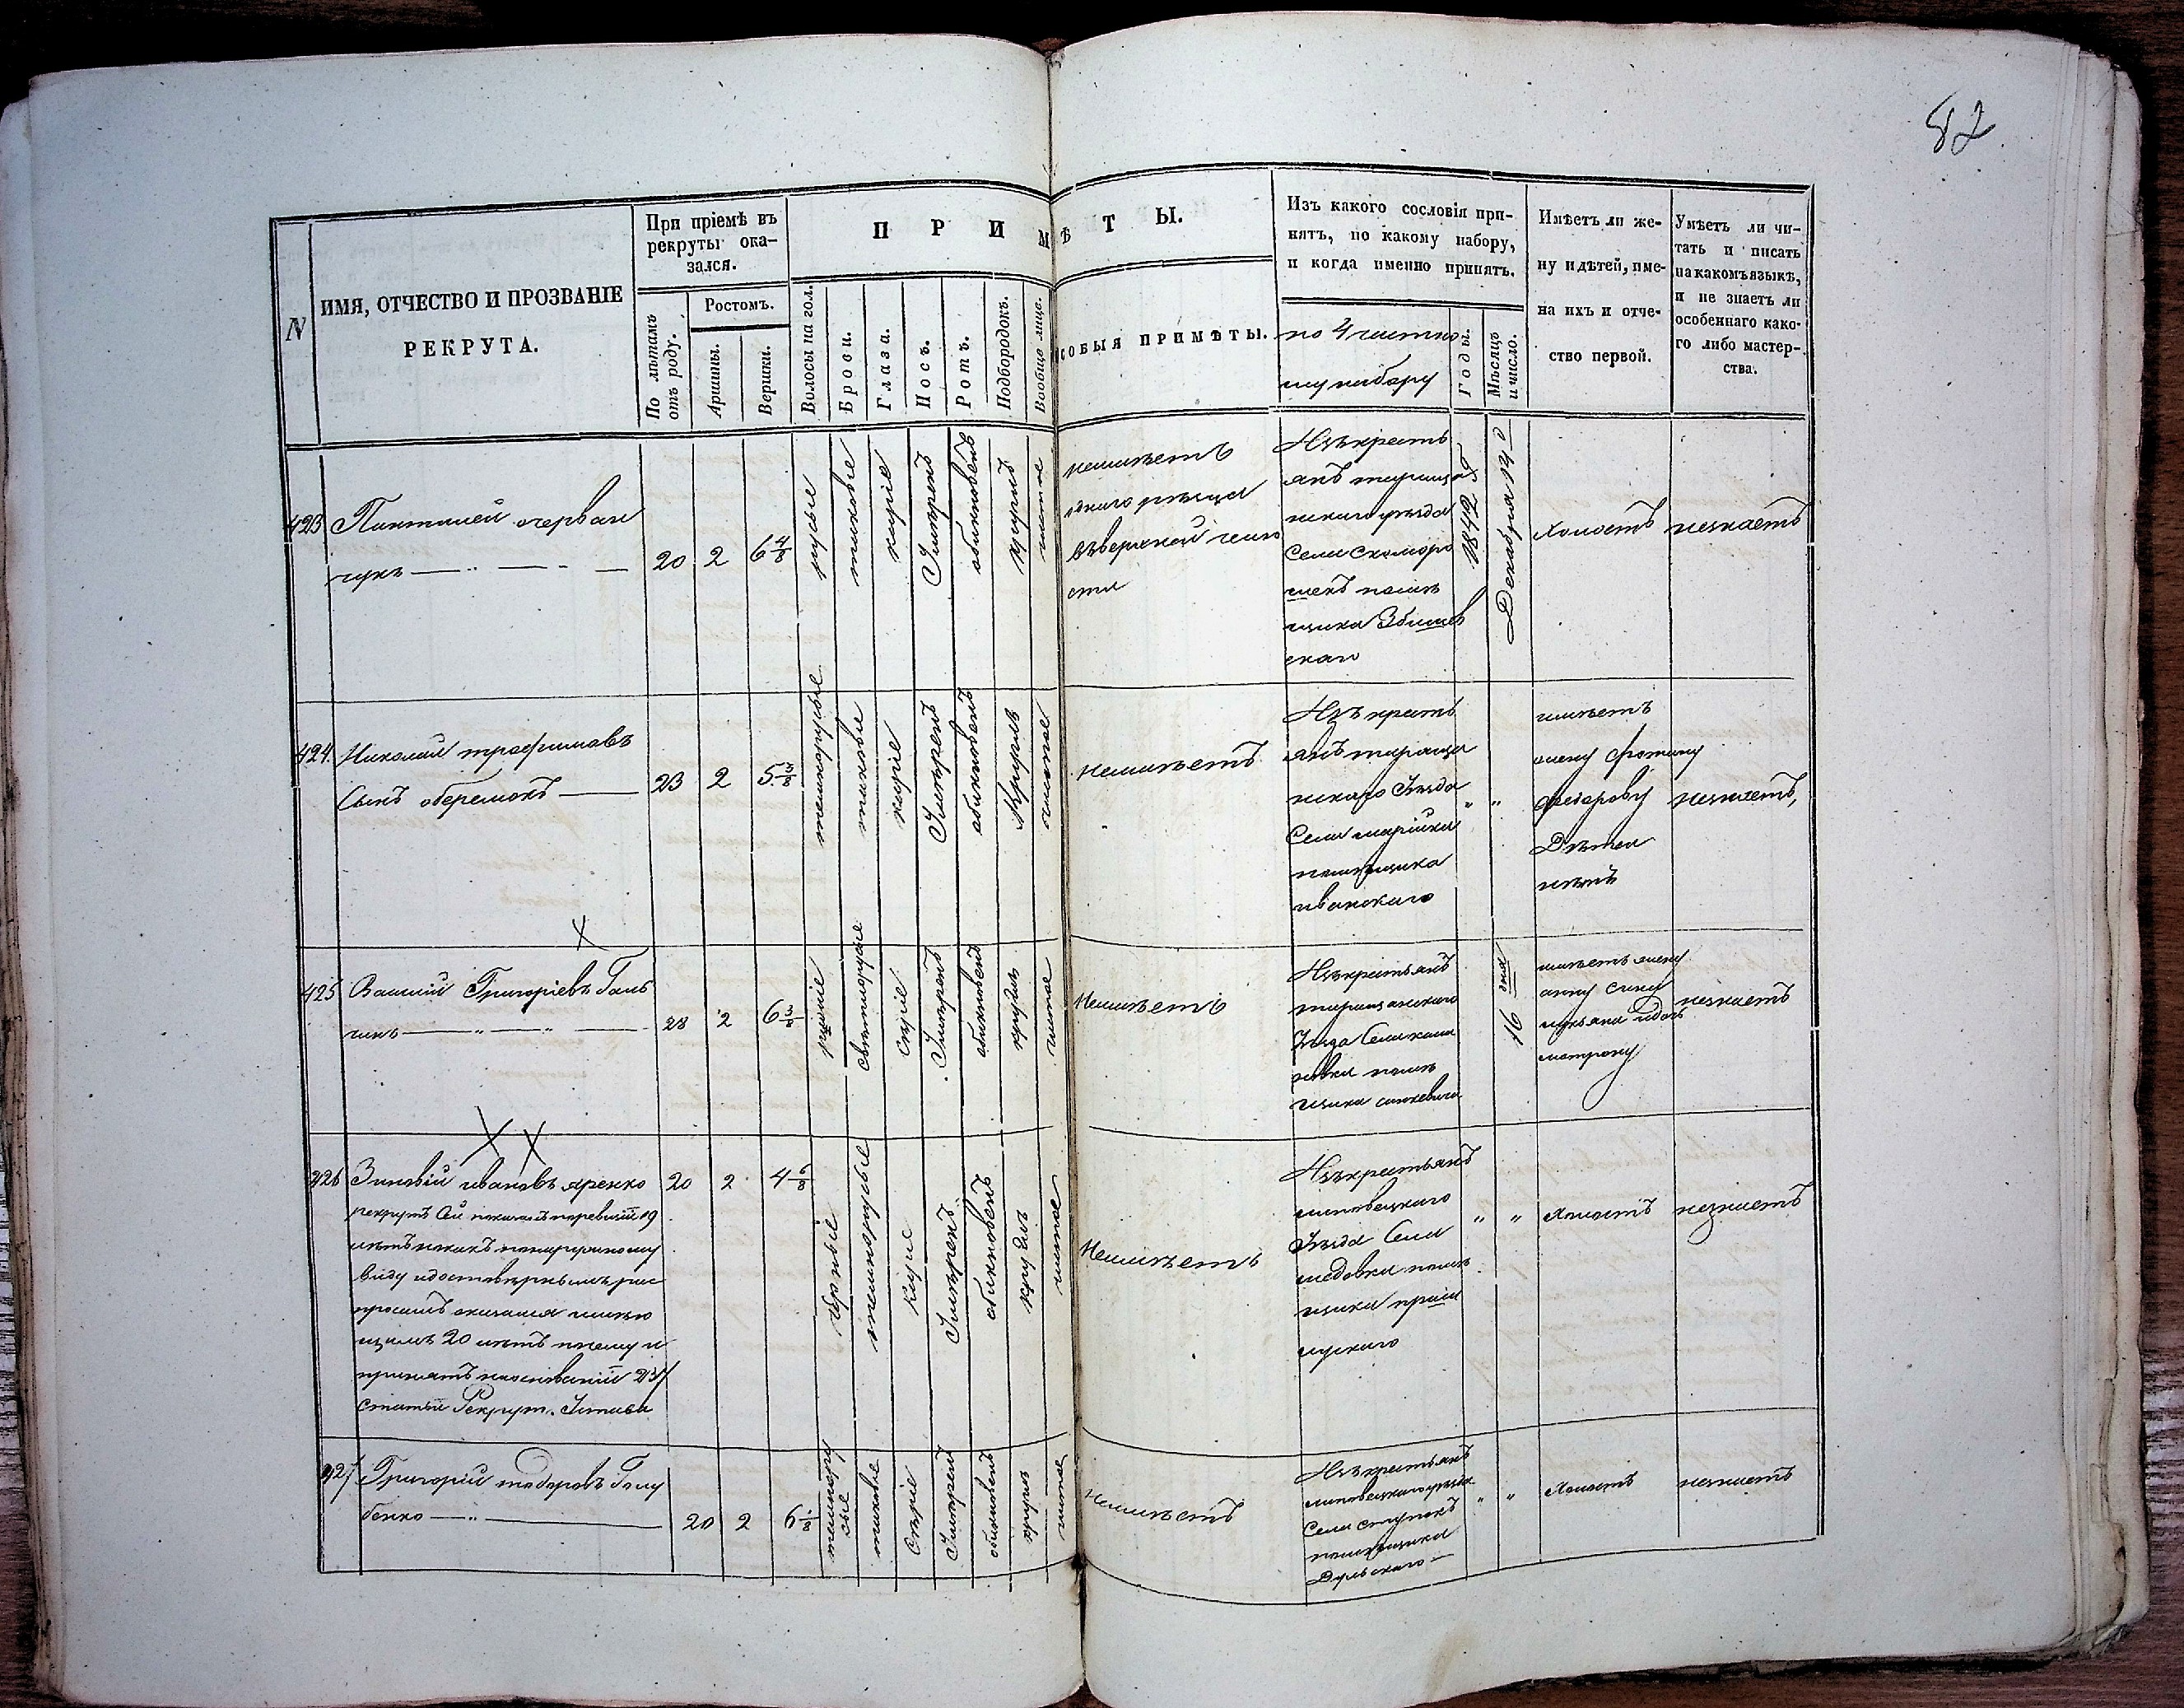 82
N
ИМЯ, ОТЧЕСТВО И ПРОЗВАНІЕ
РЕКРУТА.
При пріемѣ въ
рекруты ока-
зался.
По лѣтамъ
отъ роду.
Ростомъ.
Аршины.
Вершки.
П Р И М Ѣ Т Ы.
Волосы на гол.
Брови.
Глаза.
Носъ.
Ротъ.
Подбородокъ.
Вообще лице.
СОБЫЯ ПРИМѢТЫ.
Изъ какого сословія при-
нятъ, по какому набору,
и когда именно принятъ.
по 4 частно
му набору
Годы.
Мѣсяцъ
и число.
Имѣетъ ли же-
ну и дѣтей, име-
на ихъ и отче-
ство первой.
Умѣетъ ли чи-
тать и писать
на какомъ языкѣ,
и не знаетъ ли
особеннаго како-
го либо мастер-
ства.
423
чукъ
20
2
6 4/8
русые
таковые
каріе
Умѣренъ
обыкновенъ
Круглъ
чистое
неимѣетъ
Изъ крестъ
янъ таращан
скаго уѣзда
Села Скоморо
шекъ помѣ
щика
скаго
1842
Декабря 14
Холостъ
незнаетъ
424.
Николай трофимовъ
Сынъ оберемокъ
23
2
5 3/8
темнорусые
таковые
каріе
Умѣренъ
обыкновенъ
Круглъ
чистое
неимѣетъ
Изъ крестъ
янъ тараща
нскаго Уѣзда
Села
помѣщика
иванскаго
" "
имѣетъ
жену фотину
федорову
Дѣтей
нѣтъ
незнаетъ,
425
Василій Григоріевъ Галь
чинъ
28
2
6 3/8
свѣтлорусые
сѣріе
Умѣренъ
обыкновенъ
круглъ
чистое
Неимѣетъ
Изъ крестьянъ
таращанскаго
Уѣзда Села
помѣ
щика
16
имѣетъ жену
анну сына
матрону
незнаетъ
426
Зиновій ивановъ яренко
20
2
4 6/8
рекрутъ Сей показанъ по ревизіи 19
лѣтъ но какъ по наружному
виду и достовѣрнымъ рас
просамъ оказался имѣю
щимъ 20 лѣтъ почему и
принятъ на основаніи 234
статьи Рекрут. Устава
черные
темнорусые
каріе
Умѣренъ
обыкновенъ
круглъ
чистое
Неимѣетъ
Изъ крестьянъ
липовецкаго
Уѣзда Села
помѣ
щика
" "
Холостъ
незнаетъ
427
Григорій тодоровъ Голу
бенко
20
2
6 1/8
темнору
сые
таковые
Сѣріе
Умѣренъ
обыкновенъ
круглъ
чистое
неимѣетъ
Изъ крестьянъ
липовецкаго уѣзда
Села ступокъ
помѣщика
Дульскаго
" "
Холостъ
незнаетъ